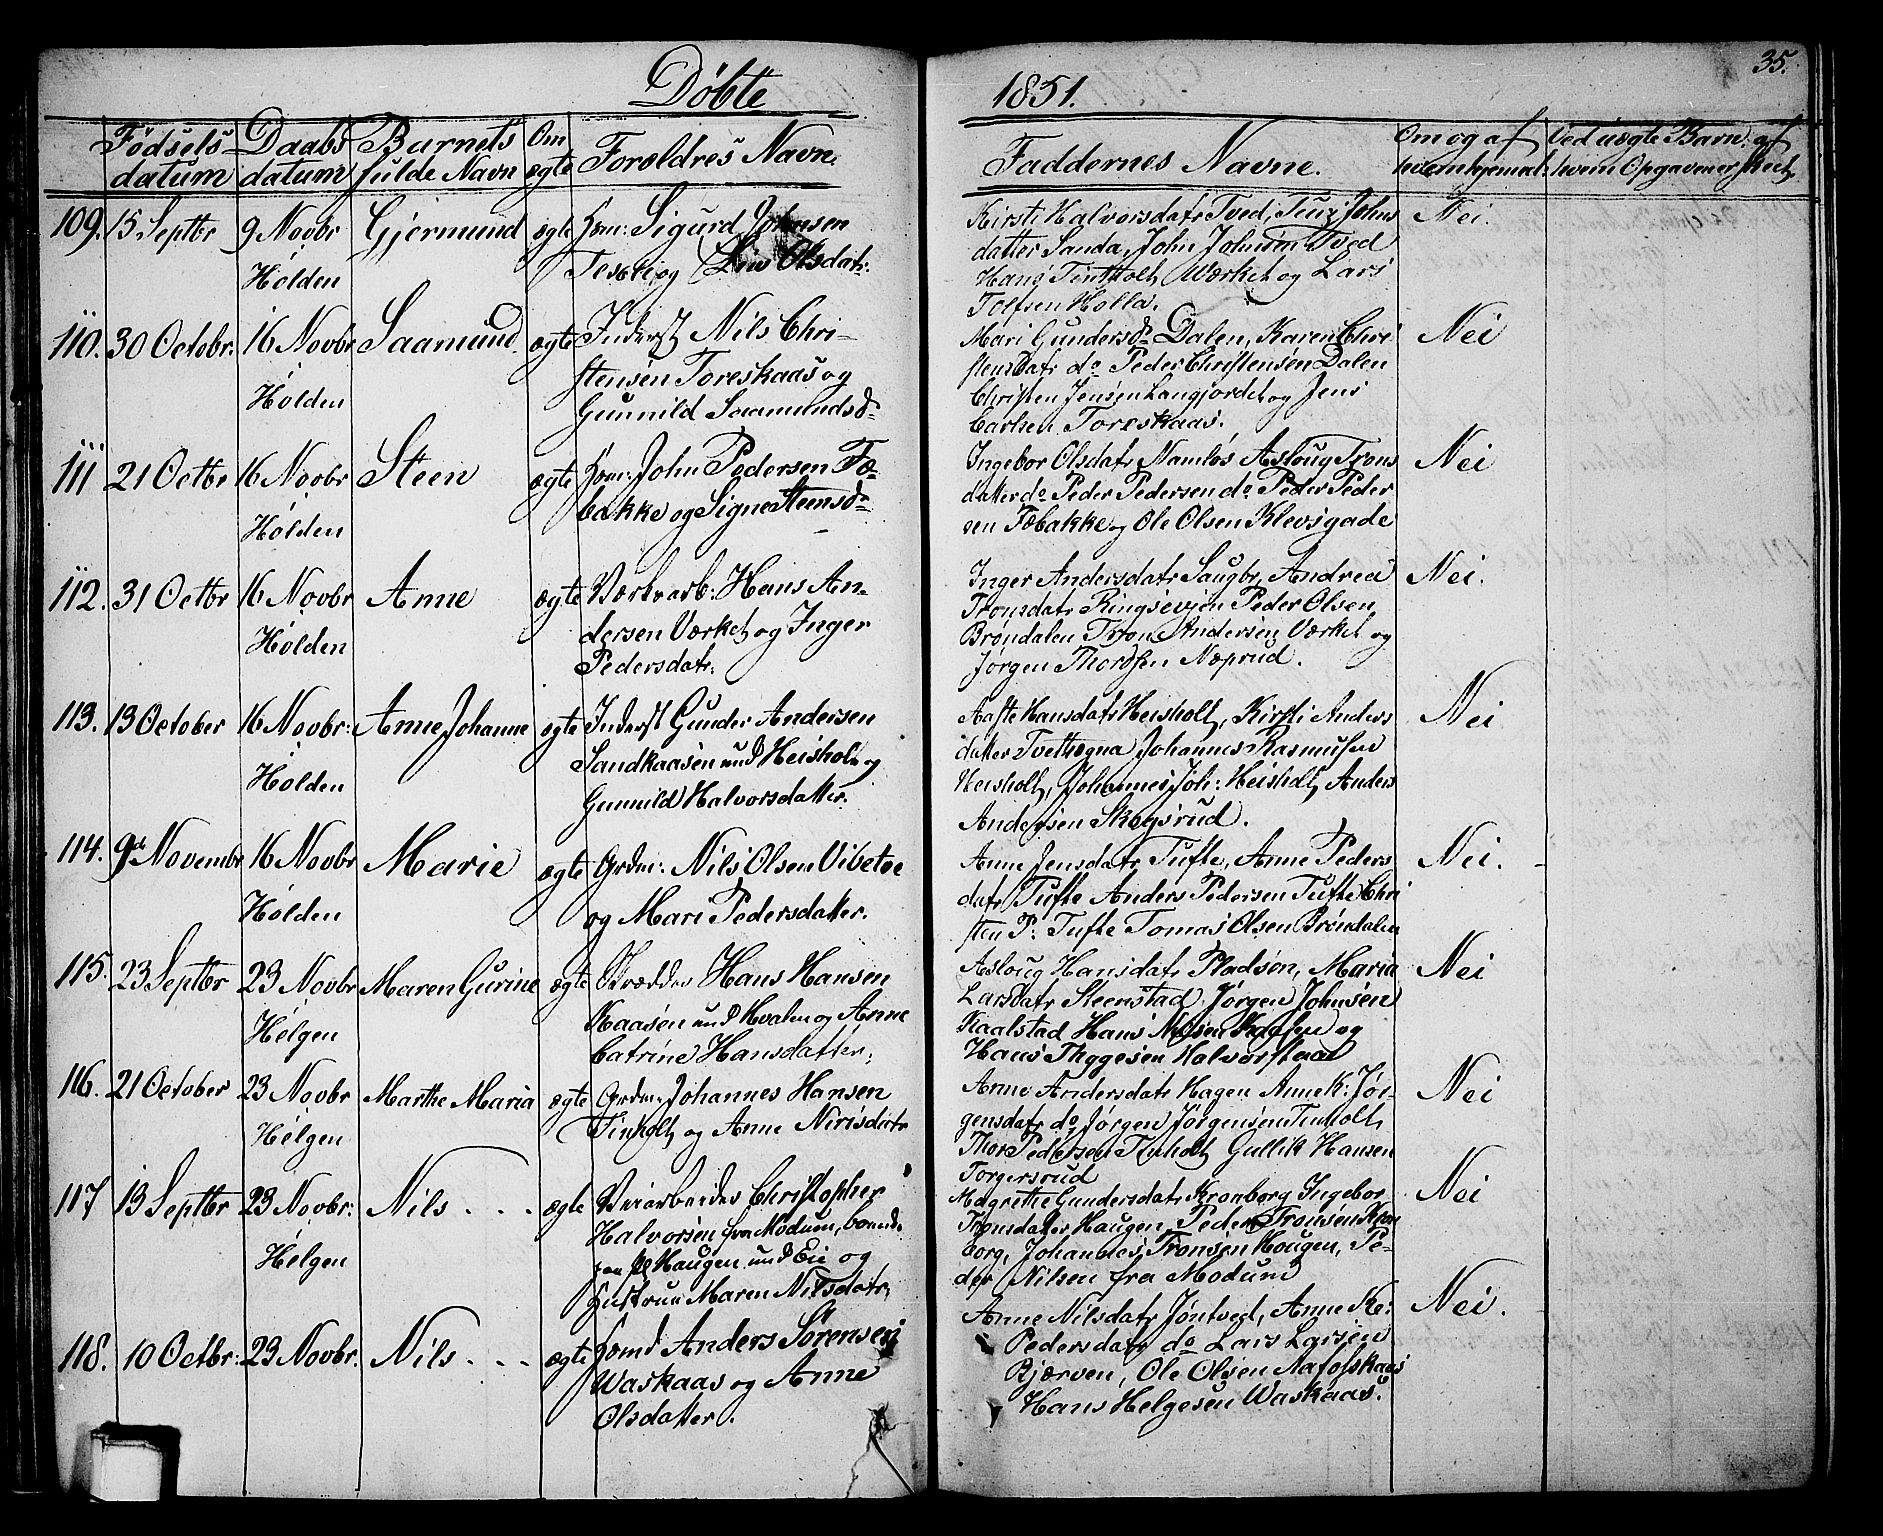 Døbte
1851.
35.
Fødsels datum
Daabs datum
Barnets fulde Navn
Om ægte
Forældres Navn.
Faddernes Navne.
Om og af hvem hjemmd:
Ved uægte Barn: af hvem Opgaven er skeet
109. 15 Septbr 9 Novbr Hølden Gjermund ægte
Hsm: Sigurd Johnsen
og Liv Olsdatr:
Kirsti Halvorsdatr Tved, Johns
datter Sanda, John Johnsen Tved
Hans Tintholt, Værket og Lars
Tolfsen Holla.
Nei.
110. 30 Octobr: 16 Novbr Hølden Saamund ægte
Inderst Nils Chri-
stensen Toreskaas og
Gunnild Saamundsd.
Mari Gundersd. Dalen, Karen Chri
stensdatr do Peder Christensen Dalen
Christen Jensen Langjordet og Jens
Carlsen Toreskaas.
Nei
111 21 Octbr 16 Novbr Hølden Steen ægte
Hsm: John Pedersen Fæ-
bakke og Signe Steensd.
Ingebor Olsdatr Namløs Asloug Trons
datter do Peder Pedersen do Peder Peder
sen Fæbakke og Ole Olsen Klevsgade
Nei
112. 31 Octbr 16 Novbr Hølden Anne ægte
Værksarb: Hans An-
dersen Værket og Inger
Pedersdatr:
Inger Andersdatr Saugbr, Andrea
Tronsdatr Ringsevjen Peder Olsen,
Brøndalen Tron Andersen Værket og
Jørgen Thordsen Næprud.
Nei.
113. 13 October 16 Novbr: Hølden Anne Johanne ægte
Inderst Gunder Andersen
Sandkaasen und Heisholt og
Gunnild Halvorsdatter.
Aaste Hansdatr Heisholt, Kirsti Anders
datter Tvetsegna Johannes Rasmusen
Heisholt, Johannes Joh: Heisholt, Anders
Andersen Skogsrud.
Nei
114. 9de Novembr 16 Novbr Hølden Marie ægte
Grdm: Nils Olsen Vibetoe
og Mari Pedersdatter.
Anne Jensdatr Tufte, Anne Peders
datr Tufte Anders Pedersen Tufte Chri
sten P: Tufte Tomas Olsen Brøndalen
Nei.
115. 23 Septbr 23 Novbr Helgen Maren Gurine ægte
Skrædder Hans Hansen
Kaasen und Hvalen og Anne
Catrine Hansdatter.
Asloug Hansdatr Pladsen, Maria
Larsdatr Steenstad, Jørgen Johnsen
Kaalstad Hans Nilsen og
Hans Thygesen
Nei
116. 21 October 23 Novbr Helgen Marthe Maria ægte
Grdm: Johannes Hansen
Tinholt og Anne Nirisdatr
Anne Andersdatr Hagen Anne K: Jør-
gensdatr do, Jørgen Jørgensen Tinholt,
Thor Pedersen Tinholt Gullik Hansen
Torgersrud
Nei
117 13 Septbr 23 Novbr: Helgen Nils . . . ægte
Veiarbeider Christopher
Halvorsen fra Modum, boende
paa Pl Haugen und Eie og
Hustrue Maren Nilsdatr.
Magrethe Gundersdatr Kronborg Ingebor
Tronsdatter Haugen, Peder Tronsen Kron
borg, Johannes Tronsen Hougen, Pe-
der Nilsen fra Modum
Nei
118. 10 Octbr: 23 Novbr. Nils . . . ægte
Hsmd Anders Sørensen
Waskaas og Anne
Olsdatter.
Anne Nilsdatr Jøntved, Anne Ke:
Pedersdatr do Lars Larsen
Bjærven, Ole Olsen Nafolskaas
Hans Helgesen Waskaas.
Nei.